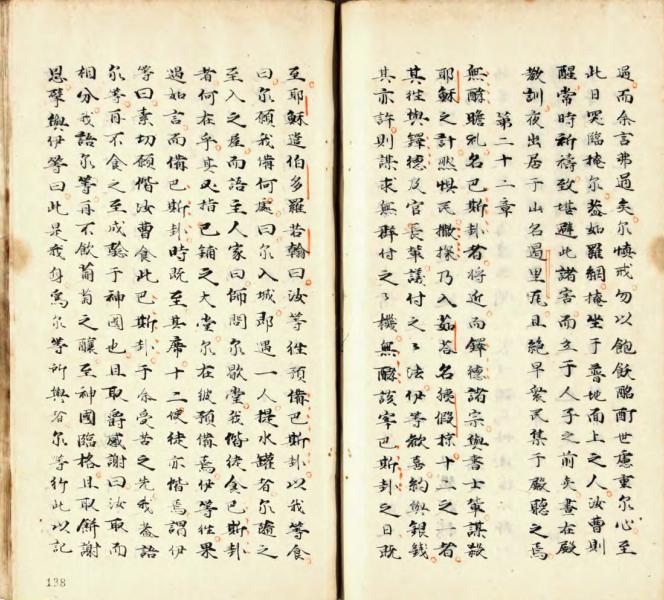 過而余言弗過矣尔慎戒勿以飽飲酩酊世慮重尔心至
此日突臨掩尔蓋如羅網掩坐于普地面上之人汝曹則
醒常時祈禱致堪避此諸害而立于人子之前矣晝在殿
教訓夜出居于山名遏里窊且絶早衆民集于殿聽之焉
第二十二章
無酵瞻礼名巴斯卦者将近而鐸德諸宗與書士軰謀殺
耶穌之計然惧民撒探乃入茹荅名 假 十二之者
其徃與鐸德及官長軰議付之之法伊等歡喜約與銀錢
其亦許則謀求無群付之之機無酵該宰巴斯卦之日既
至耶穌遣伯多羅若翰曰汝等徃預備巴斯卦以我等食
曰尔願我備何處曰尔入城即遇一人提水罐者尔隨之
至入之屋而語主人家曰師問尔歇堂我偕徒食巴斯卦
者何在乎其必指已鋪之大堂尔在彼預備焉伊等徃果
遇如言而備巴斯卦時既至其席十二使徒亦偕焉謂伊
等曰素切願偕汝曹食此巴斯卦于余受苦之先我蓋語
尔等再不食之至成驗于神國也且取爵感謝曰汝取而
相分我語尔等再不飲葡萄之釀至神國臨格且取餅謝
恩擘與伊等曰此是我身為尔等所與者尔等行此以記
138